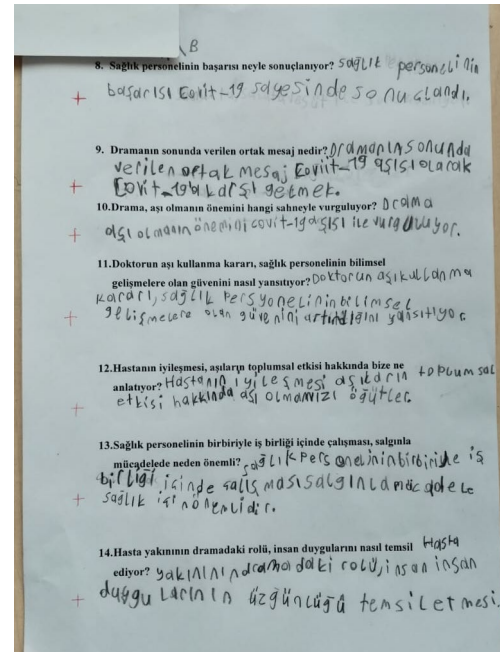 B
8. Sağlık personelinin başarısı neyle sonuçlanıyor? Sağlık personelinin
+ başarısı Covit-19 sayesinde sonuclandı.
9. Dramanın sonunda verilen ortak mesaj nedir? Dramanın sonunda
verilen ortak mesaj Coviit-19 aşısı olarak
+ Covit-19'a karşı gelmek.
10.Drama, aşı olmanın önemini hangi sahneyle vurguluyor? Drama
+ aşı olmanın önemini covit-19 aşısı ile vurguluyor.
11.Doktorun aşı kullanma kararı, sağlık personelinin bilimsel
gelişmelere olan güvenini nasıl yansıtıyor? Doktorun aşı kullanma
kararı, sağlık persyonelinin bilimsel
+ gelişmelere olan güvenini artındığını yansıtıyor
12.Hastanın iyileşmesi, aşıların toplumsal etkisi hakkında bize ne
anlatıyor? Hastanın iyileşmesi aşıların toplumsal
+ etkisi hakkında aşı olmamızı öğütler.
13.Sağlık personelinin birbiriyle iş birliği içinde çalışması, salgınla
mücadelede neden önemli? sağlık personelinin birbiriyle iş
birliği içinde salışması salgınla mücadele
+ sağlık için önemlidir.
14.Hasta yakınının dramadaki rolü, insan duygularını nasıl temsil Hasta
ediyor? yakınının dramadaki rolü, insan insan
+ duygularının üzgünlüğü temsil etmesi.